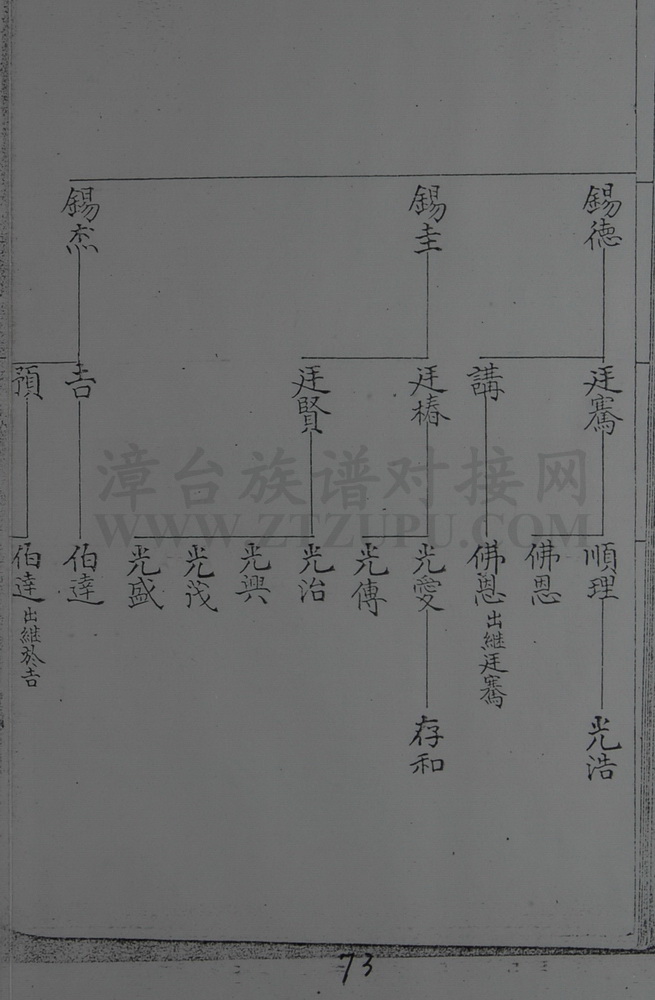 錫德
錫圭
錫杰
廷騫
講
廷椿
廷賢
吉
預
順理
佛恩
佛恩出繼廷騫
光愛
光傳
光治
光興
光茂
光盛
伯達
伯達出繼於吉
光浩
存和
漳台族谱对接网
WWW.ZTZUPU.COM
73